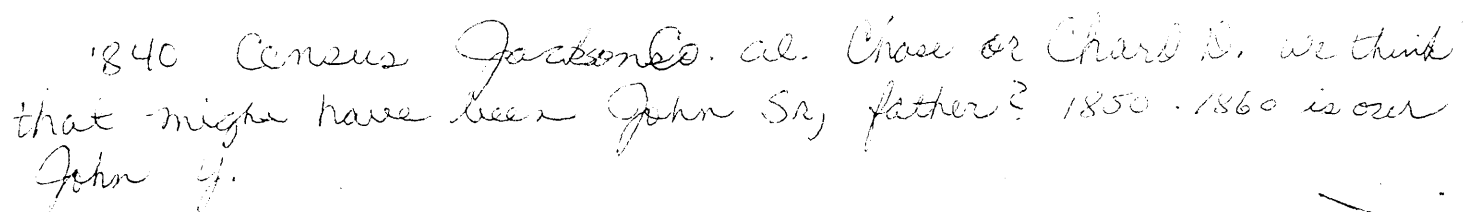 1840 Census Jackson Co. Al. Chase or Chard D. we think
that might have been John Sr, father? 1850 - 1860 is our
John Y.